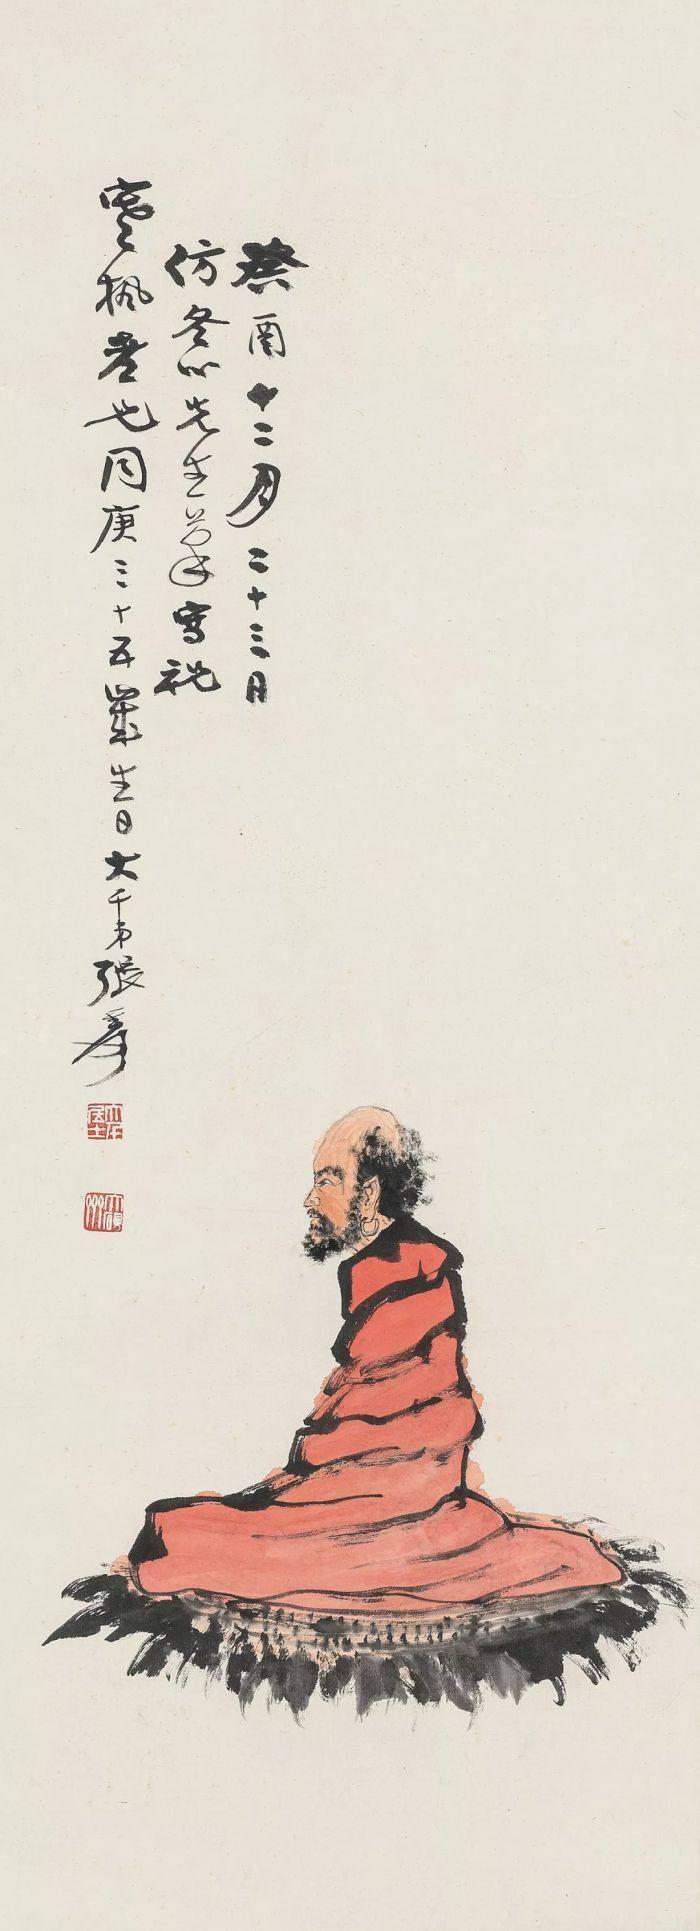 癸酉十二月二十三日
仿冬心先生筆寫祝
楓老兄同庚三十五歲生日大千弟張爰